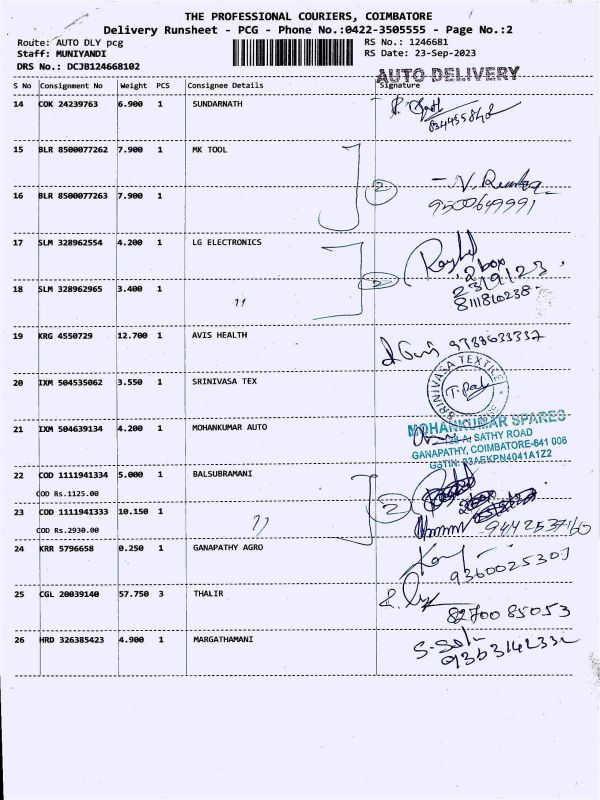 THE PROFESSIONAL COURIERS, COIMBATORE
Delivery Runsheet - PCG - Phone No.:0422-3505555 - Page No.:2
Route: AUTO DLY pcg RS No.: 1246681
Staff: MUNIYANDI RS Date: 23-Sep-2023
DRS No.: DCJB124668102
AUTO DELIVERY
S No Consignment No Weight PCS Consignee Details Signature
14 COK 24239763 6.900 1 SUNDARNATH
15 BLR 8500077262 7.900 1 MK TOOL
2
16 BLR 8500077263 7.900 1
9500649991
17 SLM 328962554 4.200 1 LG ELECTRONICS
2 box
2
23/9/23
18 SLM 328962965 3.400 1 "
8111810238
19 KRG 4550729 12.700 1 AVIS HEALTH
9788633337
20 IXM 504535062 3.550 1 SRINIVASA TEX
SRINIVASA TEXTILE
21 IXM 504639134 4.200 1 MOHANKUMAR AUTO
MOHANKUMAR SPARES
SATHY ROAD
GANAPATHY, COIMBATORE-641 006
GSTIN: 33AEKPN4041A1Z2
22 COD 1111941334 5.000 1 BALSUBRAMANI
COD Rs.1125.00
2
23 COD 1111941333 10.150 1 "
COD Rs.2930.00
9442537160
24 KRR 5796658 0.250 1 GANAPATHY AGRO
9360025307
25 CGL 20039140 57.750 3 THALIR
8270085053
26 HRD 326385423 4.900 1 MARGATHAMANI
9363142332